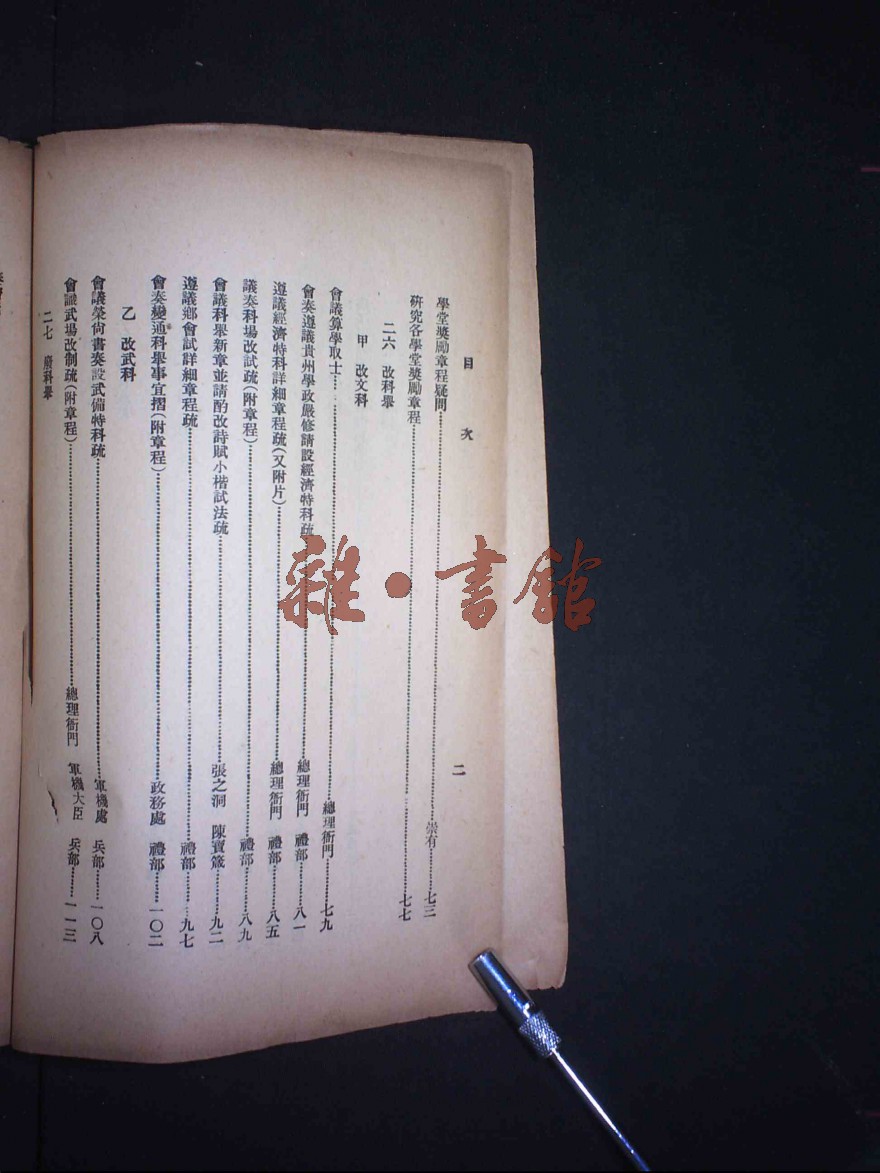 目次
二
學堂奬勵章程疑問……崇有……七三
研究各學堂奬勵章程……七七
二六 改科舉
甲 改文科
會議算學取士……總理衙門……七九
會奏遵議貴州學政嚴修請設經濟特科疏……總理衙門 禮部……八一
遵議經濟特科詳細章程疏(又附片)……總理衙門 禮部……八五
議奏科場改試疏(附章程)……禮部……八九
會議科舉新章並請酌改詩賦小楷試法疏……張之洞 陳寶箴……九二
遵議鄉會試詳細章程疏……禮部……九七
會奏變通科舉事宜摺(附章程)……政務處 禮部……一〇二
乙 改武科
會議榮尙書奏設武備特科疏……軍機處 兵部……一〇八
會議武場改制疏(附章程)……總理衙門 軍機大臣 兵部……一一三
二七 廢科舉
雜·書館